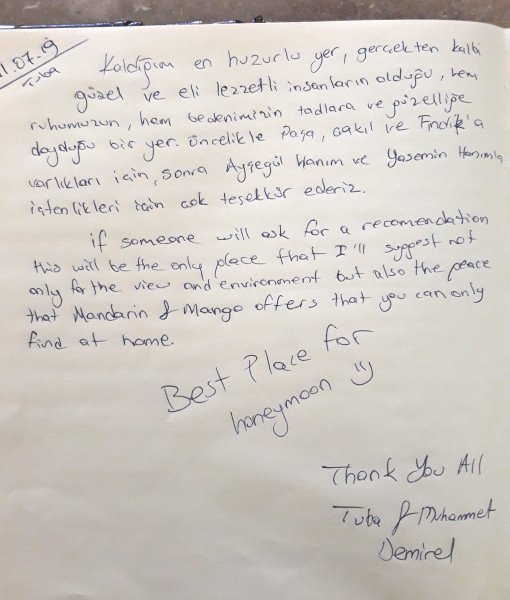 1.07.19
Tuba
Kaldığım en huzurlu yer, gerçekten kalbi
güzel ve eli lezzetli insanların olduğu, hem
ruhumuzun, hem bedenimizin tadlara ve güzelliğe
doyduğu bir yer. Öncelikle Paşa, Çakıl ve Fındık'a
varlıkları için, sonra Ayşegül Hanım ve Yasemin Hanımla
içtenlikleri için çok teşekkür ederiz.
if someone will ask for a recomendation
this will be the only place that I'll suggest not
only for the view and environment but also the peace
that Mandarin & Mango offers that you can only
find at home.
Best Place for
honeymoon :)
Thank You All
Tuba & Muhammet
Demirel